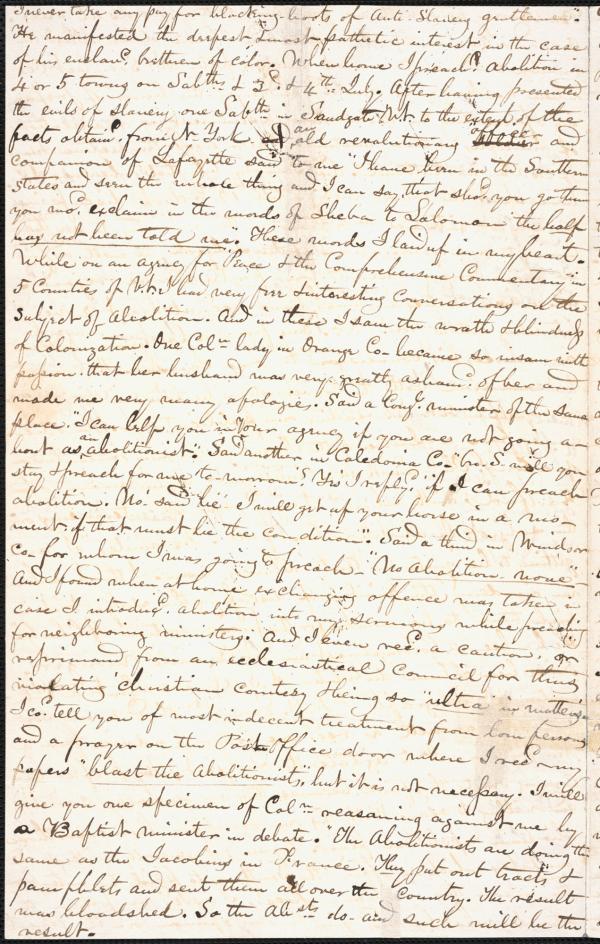 I never take any pay for blacking boots of Anti-Slavery gentlemen".
He manifested the deepest & most pathetic interest in the case
of his enslavd. brethren of color. When home I preachd. Abolition in
4 or 5 towns on Sabths & 3d. & 4th July. After having presented
the evils of slavery one Sabth in Sandgate Vt. to the extent of the
facts obtaind. from N. York. an old revolutionary officer and
companion of Lafayette said to me "I have been in the Southern
States and seen the whole thing and I can say that shod. you go them
you wod. exclaim in the words of Sheba to Solomon the half
has not been told me". These words I laid up in my heart.
While on an agency for "Peace & the Comprehensive Commentary" in
5 Counties of Vt. I had very free & interesting conversations on the
subject of Abolition. And in these I saw the wrath & blindness
of Colonization. One Coln lady in Orange Co- became so insane with
passion that her husband was very greatly ashamd. of her and
made me very many apologies. Said a Congl. minister of the same
place. "I can help you in your agency if you are not going a-
bout as an abolitionist". Said another in Caledonia Co- "bro. S. will you
stay & preach for me to-morrow? Yes I replyd. if I can preach
abolition. No' said he' I will get up your horse in a mo-
ment, if that must be the condition". Said a third in Windsor
Co- for whom I was going to preach- "No Abolition none"-
And I found when at home exchanging offence was taken in
case I introducd. abolition into my sermons while preaching
for neighboring ministers. And I even recd. a caution, or
reprimand from an ecclesiastical Council for thus
violating christian courtesy & being so "ultra" in matters
I cod. tell you of most indecent treatment from some persons
and a prayer on the Post Office door where I recd my
papers "blast the Abolitionist", but it is not necessary. I will
give you one specimen of Coln reasoning against me by
a Baptist minister in debate. "The Abolitionists are doing the
same as the Jacobins in France. They put out tracts &
pamphlets and sent them all over the country. The result
was bloodshed. So the Absts do- and such will be the
result.